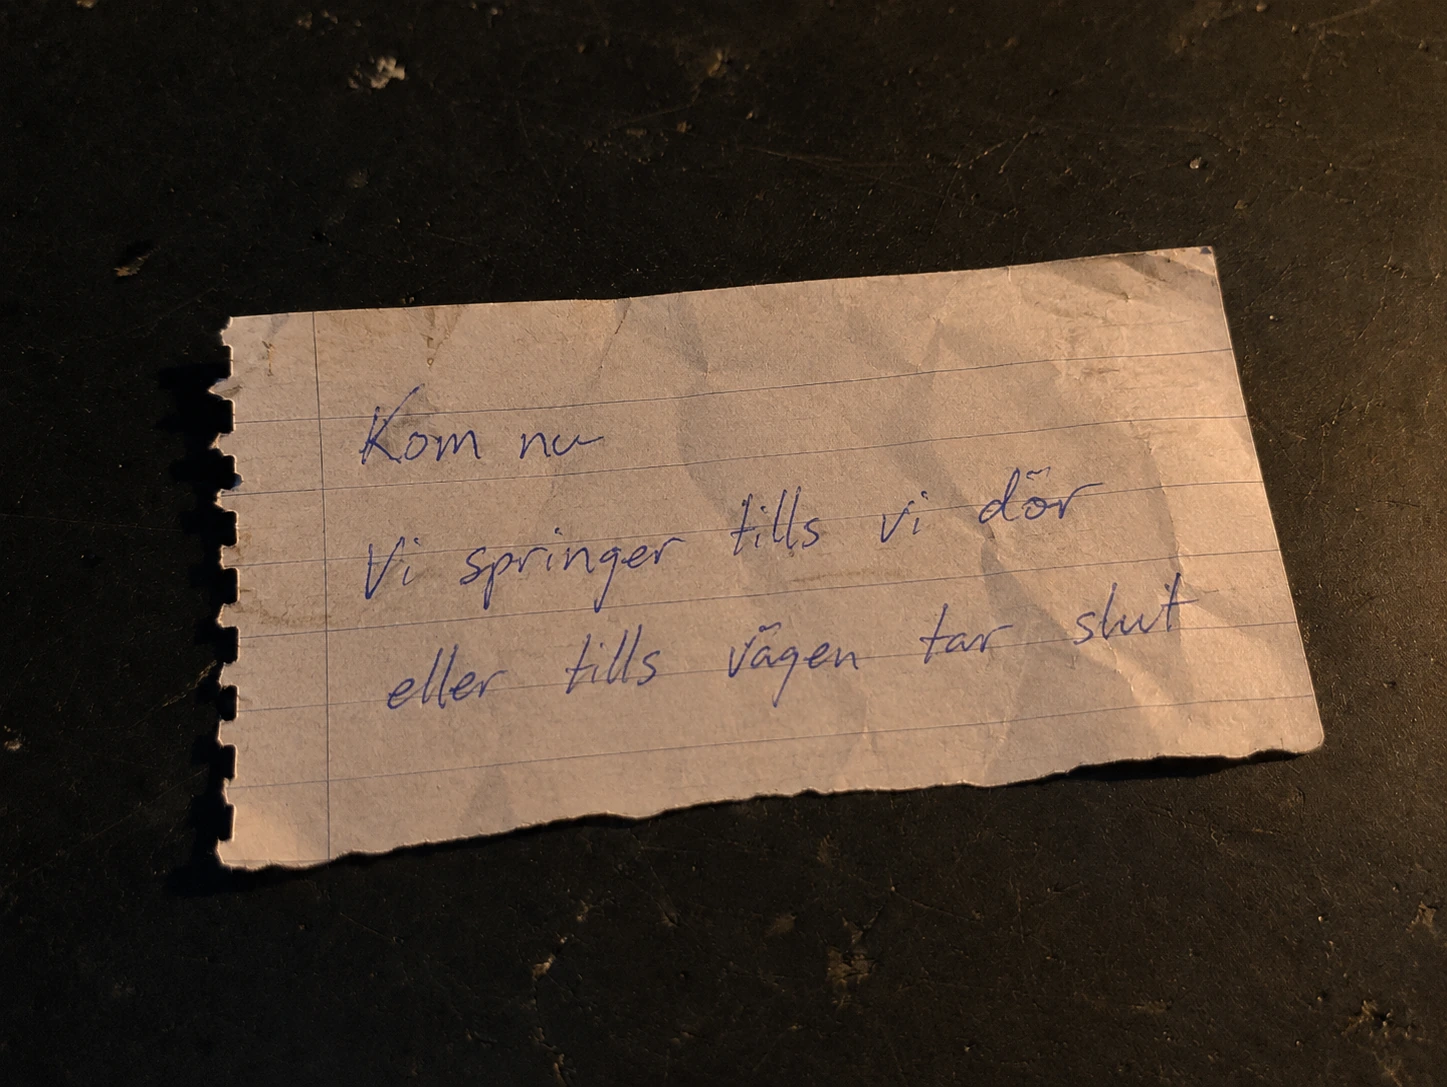 Kom nu
Vi springer tills vi dör
eller tills vägen tar slut